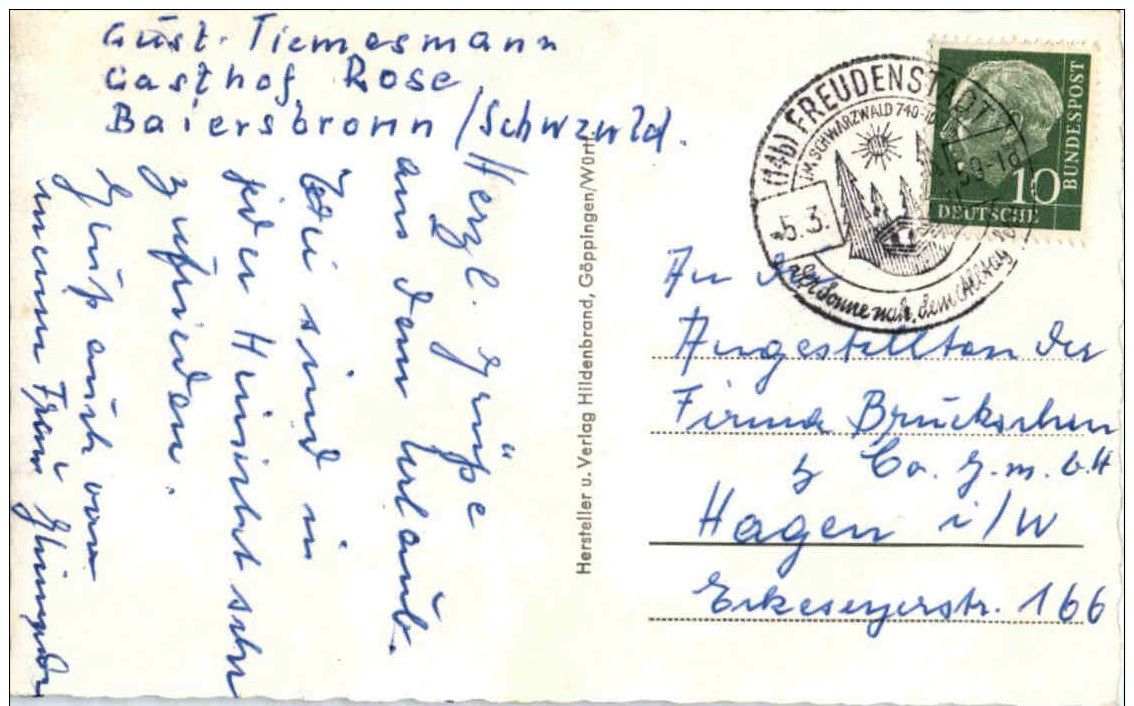 Gust. Tiemesmann
Gasthof Rose
Baiersbronn / Schwzwld.
Herzl. Grüße
aus dem Urlaub.
Wir sind in
jeder Hinsicht sehr
zufrieden.
Gruß auch von
meiner Frau
Hersteller u. Verlag Hildenbrand, Göppingen/Württ.
(14b) FREUDENSTADT
IM SCHWARZWALD 740-10
5.3.
der Sonne nah, dem Alltag
BUNDESPOST
10
DEUTSCHE
An die
Angestellten der
Firma
& Co. G.m.b.H
Hagen i/W
Eckeseyerstr. 166